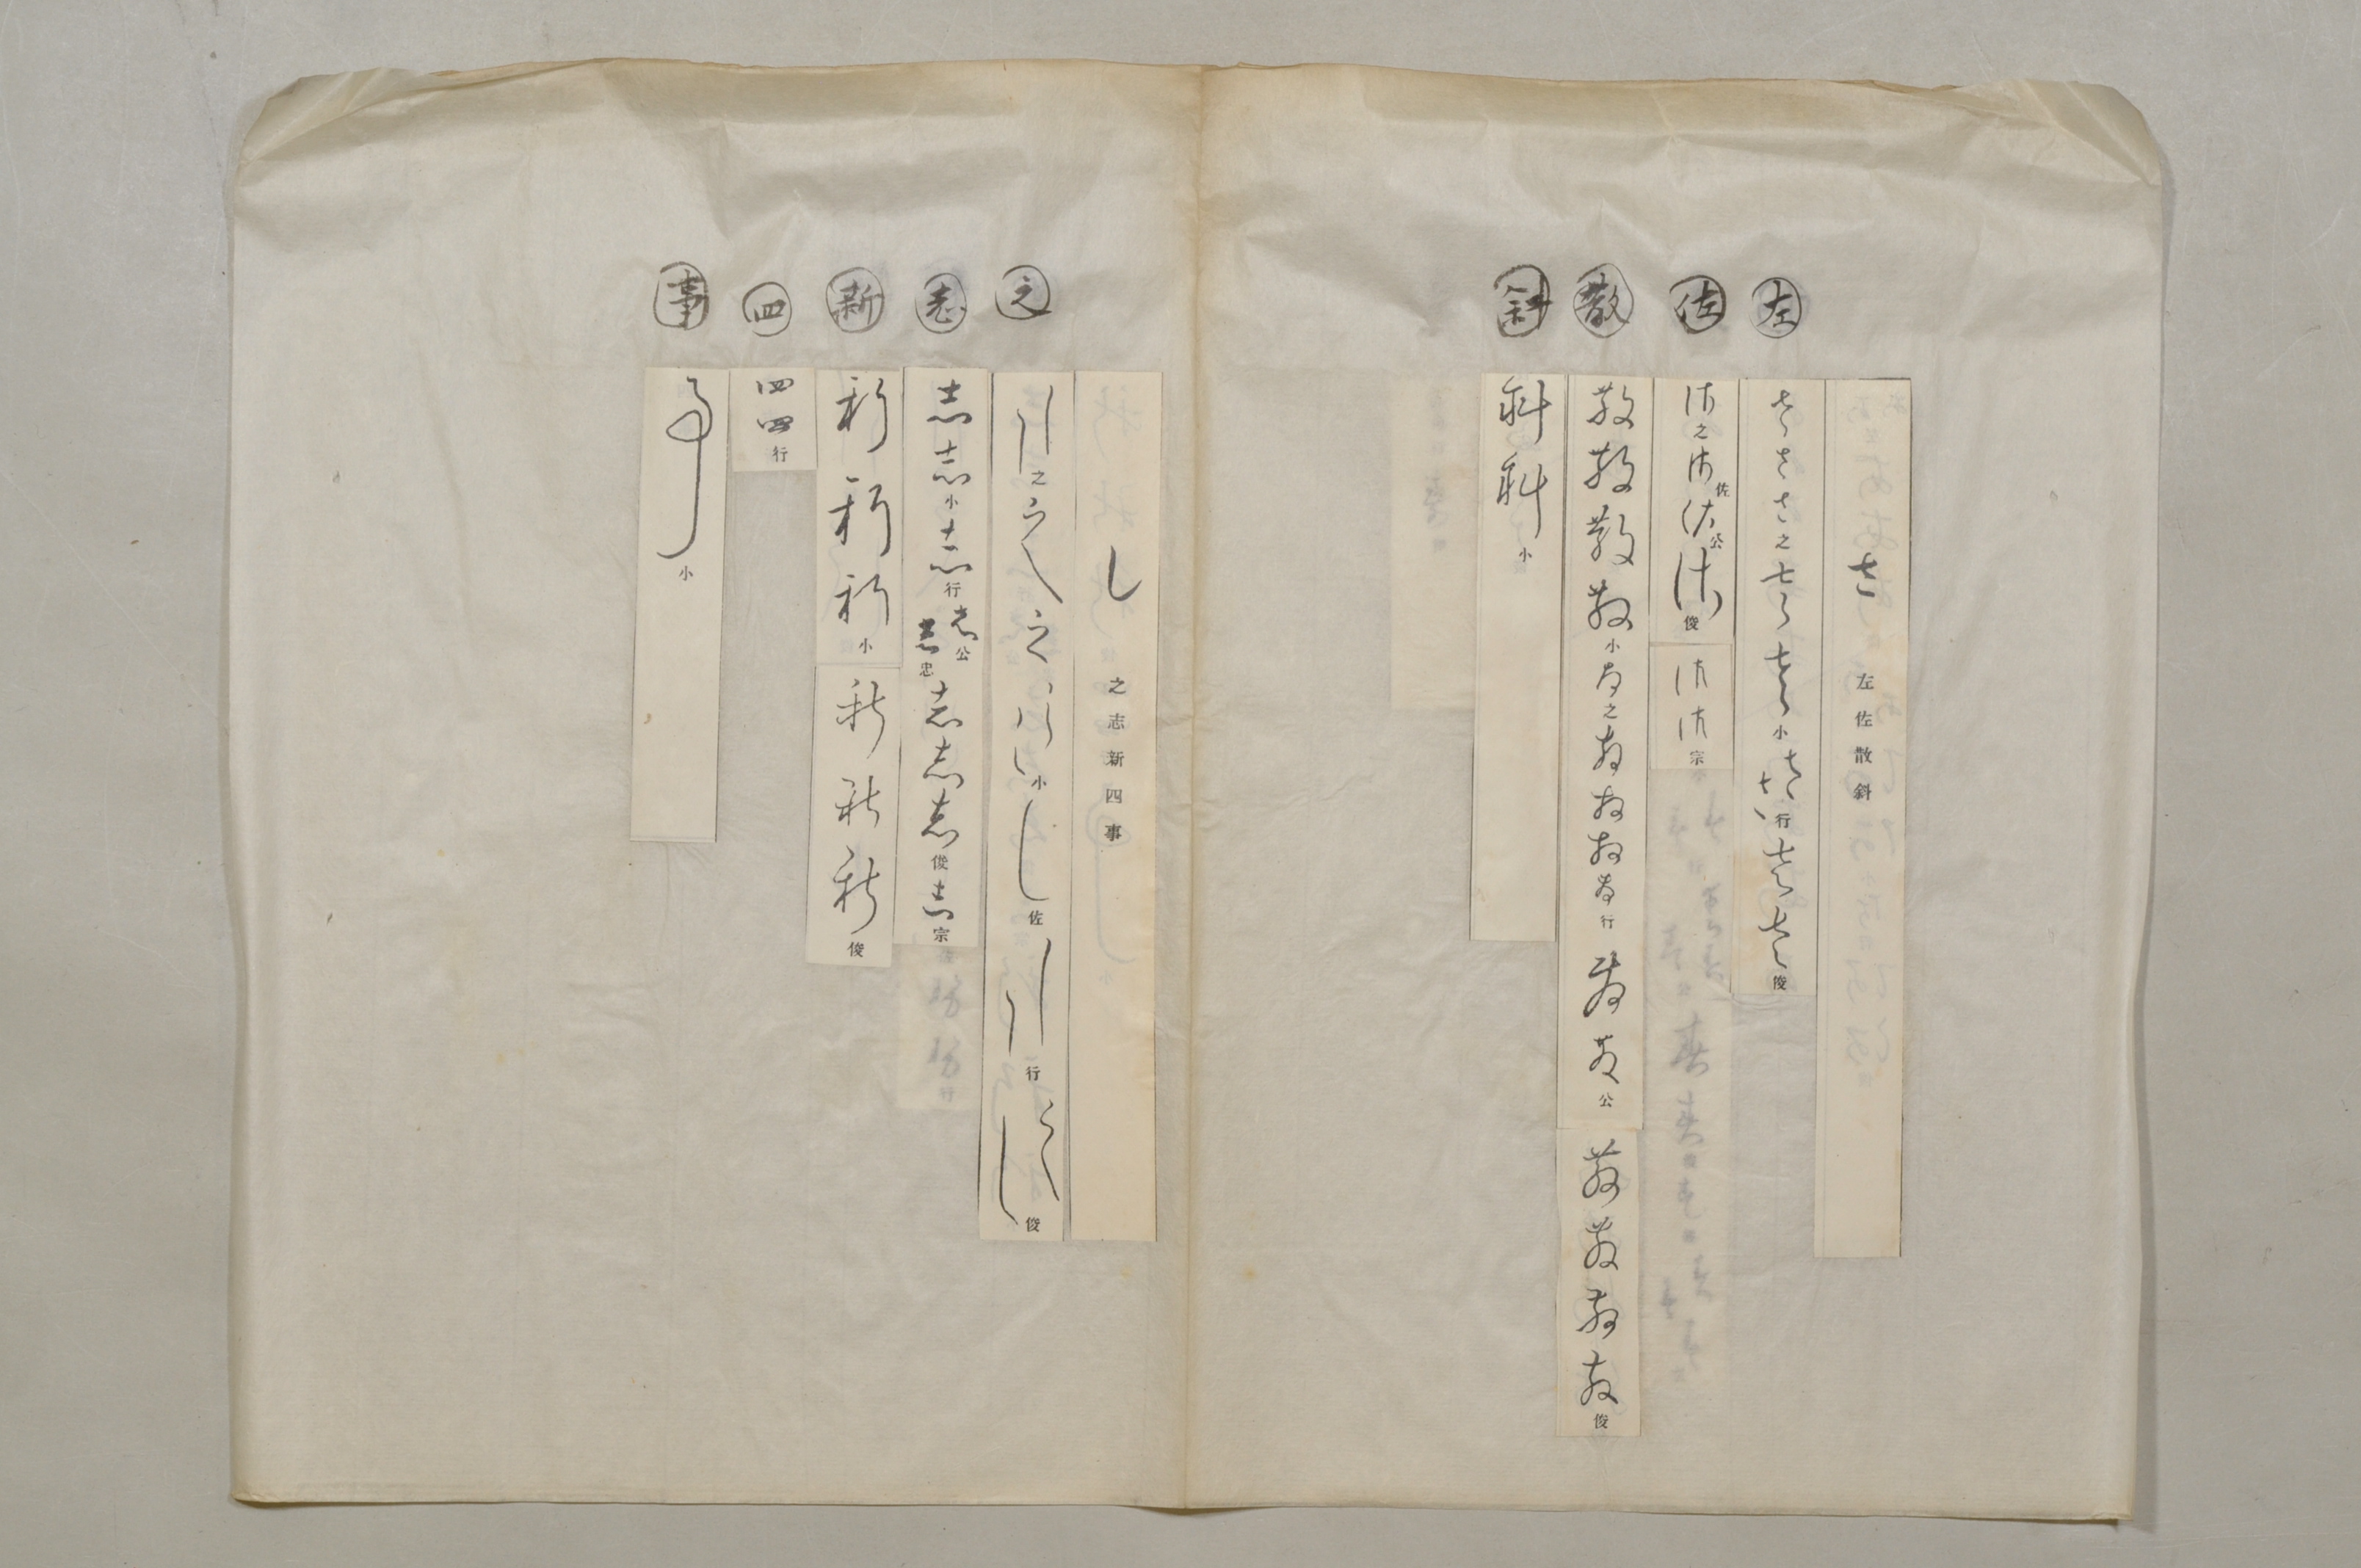 左
佐
散
斜
さ 左佐散斜
さささ之ささ小ささ行ささ俊
佐之佐佐佐公佐俊
佐佐宗
散散散散小散之散散散散行散散公
散散散散俊
斜斜小
之
志
新
四
事
し 之志新四事
しし之しし小し佐しし行しし俊
志志小志行志公志忠志志志俊志宗
新新新小
新新新俊
四四行
事小